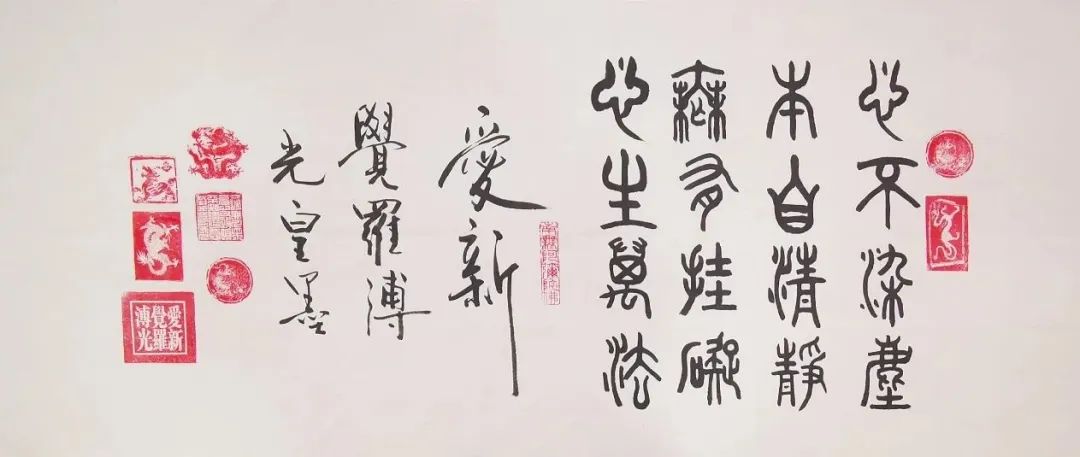 心不染塵
本自清靜
無有挂礙
心生萬法
愛新
覺羅溥
光皇墨
愛新
覺羅
溥光